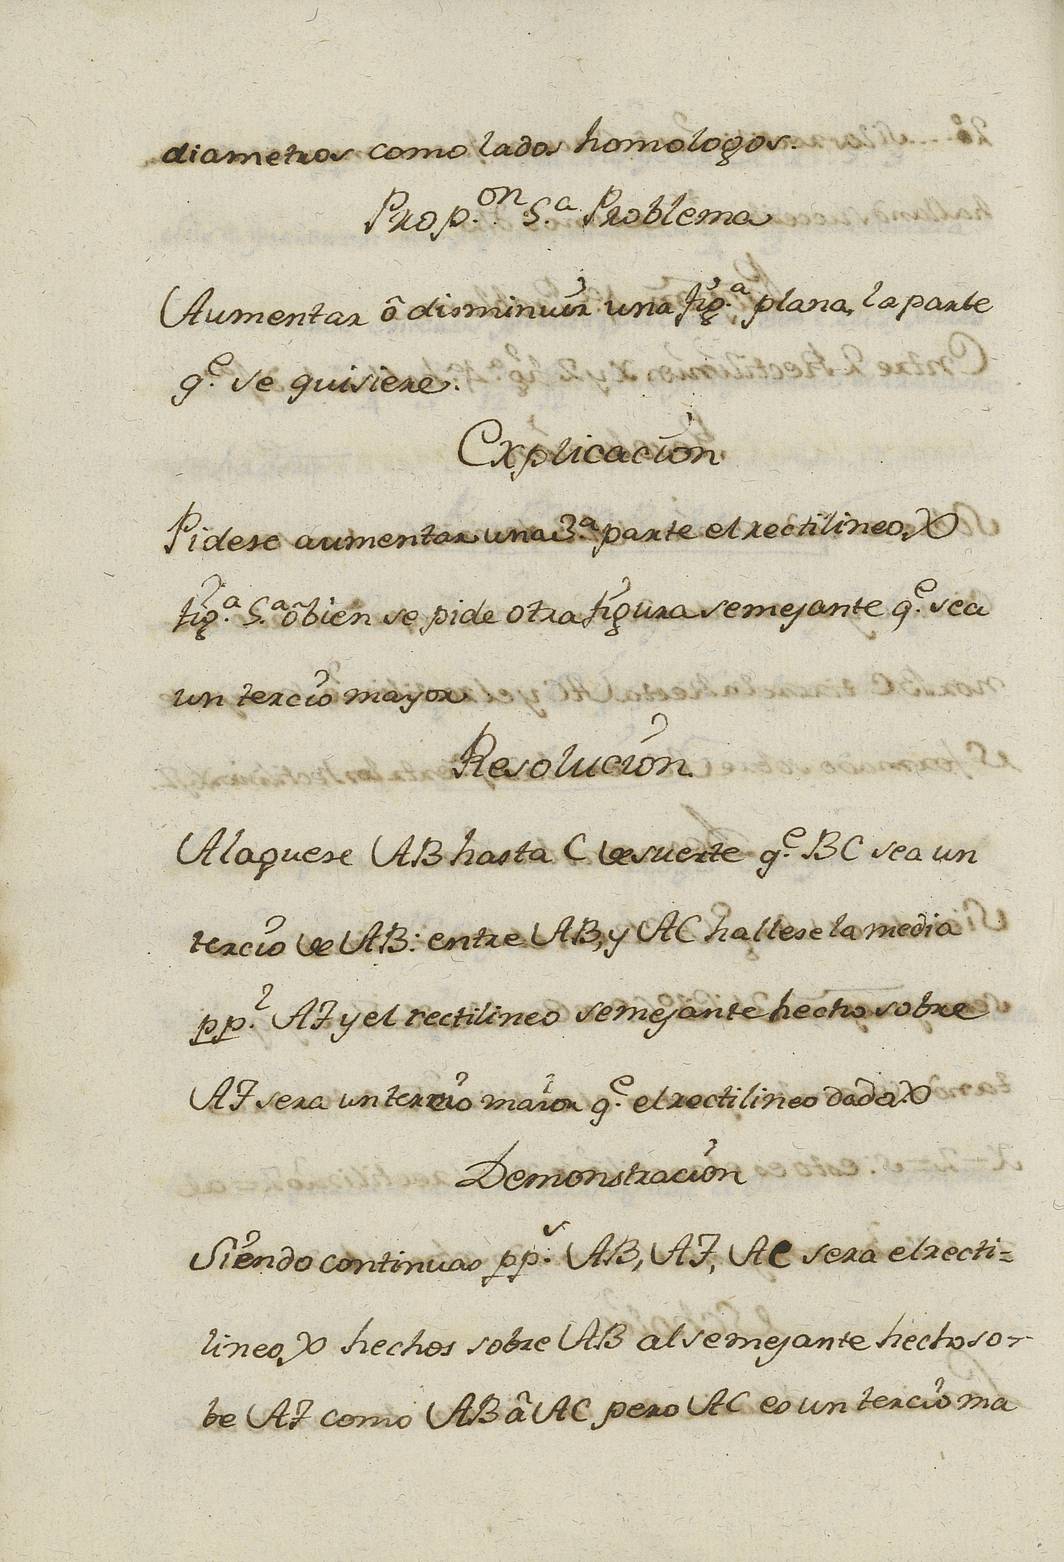 diametros como lados homologos.
Prop.on 5.a Problema
Aumentar ô disminuir una fig.a plana, la parte
q.e se quisiere.
Explicacion
Pidese aumentar una 3.a parte el rectilineo X
fig.a 5.a ô bien se pide otra figura semejante q.e sea
un tercio mayor
Resolucion
Alaguese AB hasta C de suerte q.e BC sea un
tercio de AB: entre AB, y AC hallese la media
pp.l AF y el rectilineo semejante hecho sobre
AF sera un tercio maior q.e el rectilineo dado X
Demonstracion
Siendo continuas pp.s AB, AF, AC sera el recti=
lineo X hechos sobre AB al semejante hecho so-
be AF como AB â AC pero AC es un tercio ma